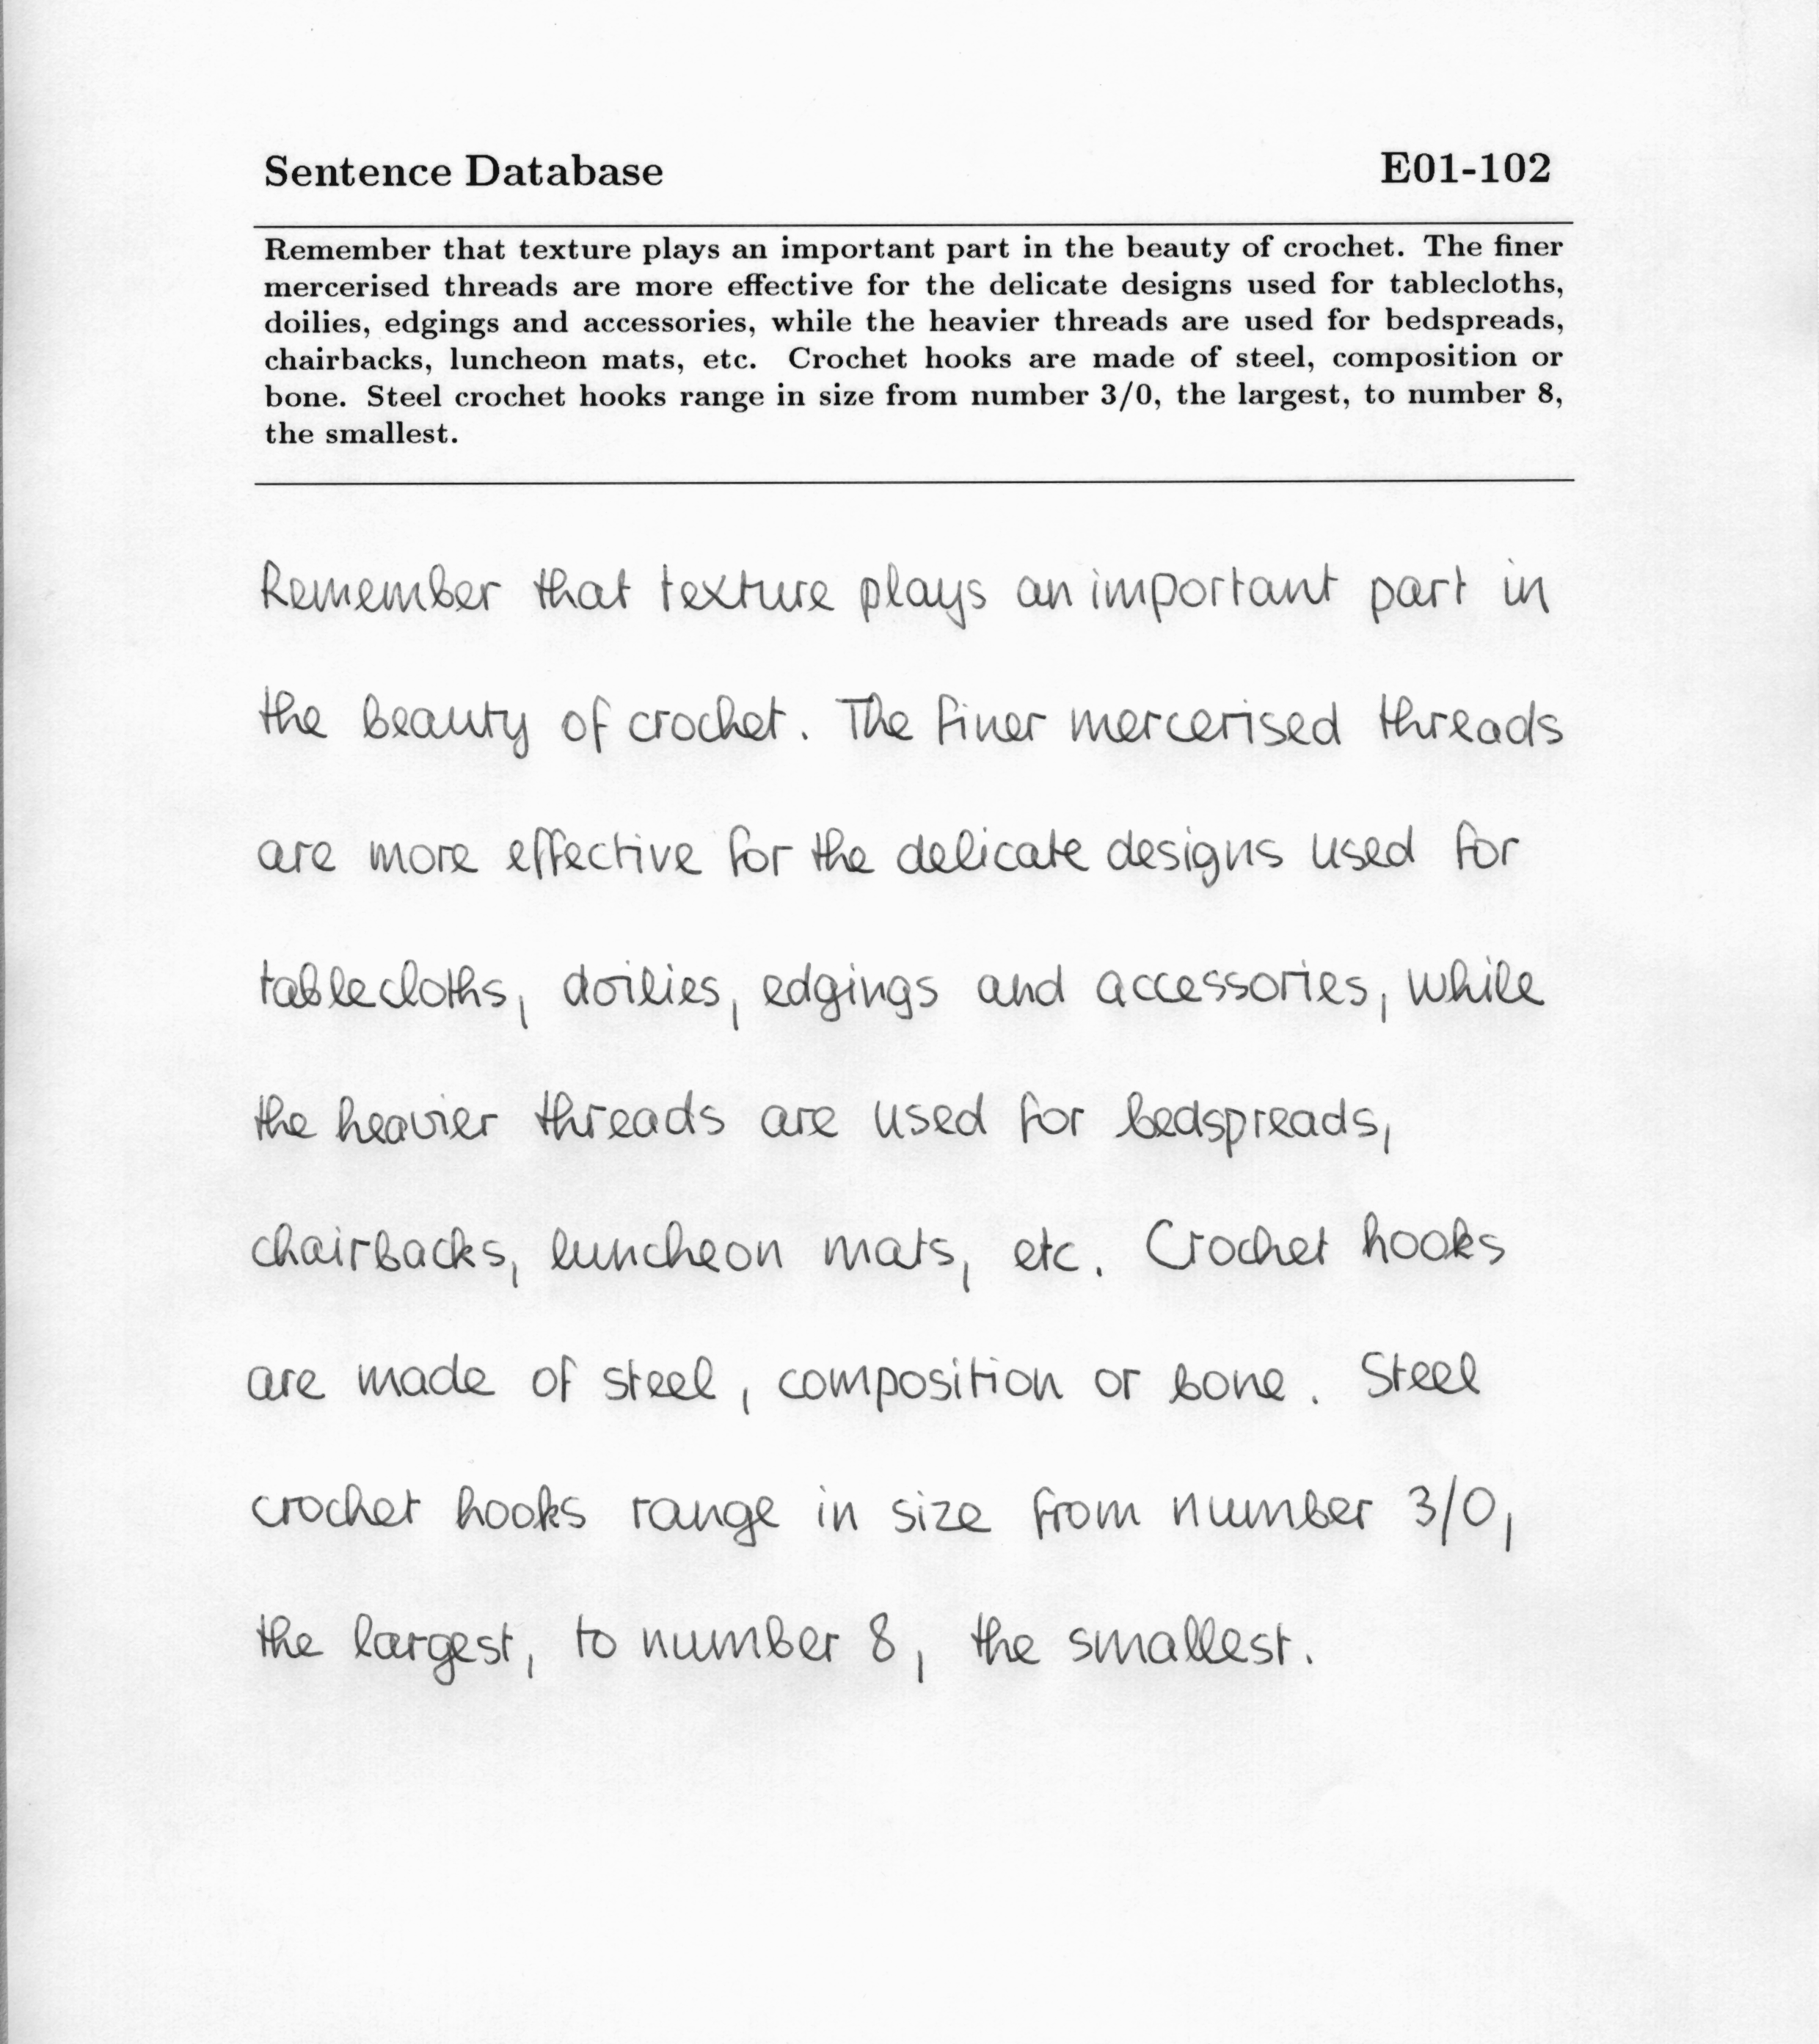 Sentence Database E01-102
Remember that texture plays an important part in the beauty of crochet. The finer
mercerised threads are more effective for the delicate designs used for tablecloths,
doilies, edgings and accessories, while the heavier threads are used for bedspreads,
chairbacks, luncheon mats, etc. Crochet hooks are made of steel, composition or
bone. Steel crochet hooks range in size from number 3/0, the largest, to number 8,
the smallest.
Remember that texture plays an important part in
the beauty of crochet. The finer mercerised threads
are more effective for the delicate designs used for
tablecloths, doilies, edgings and accessories, while
the heavier threads are used for bedspreads,
chairbacks, luncheon mats, etc. Crochet hooks
are made of steel, composition or bone. Steel
crochet hooks range in size from number 3/0,
the largest, to number 8, the smallest.